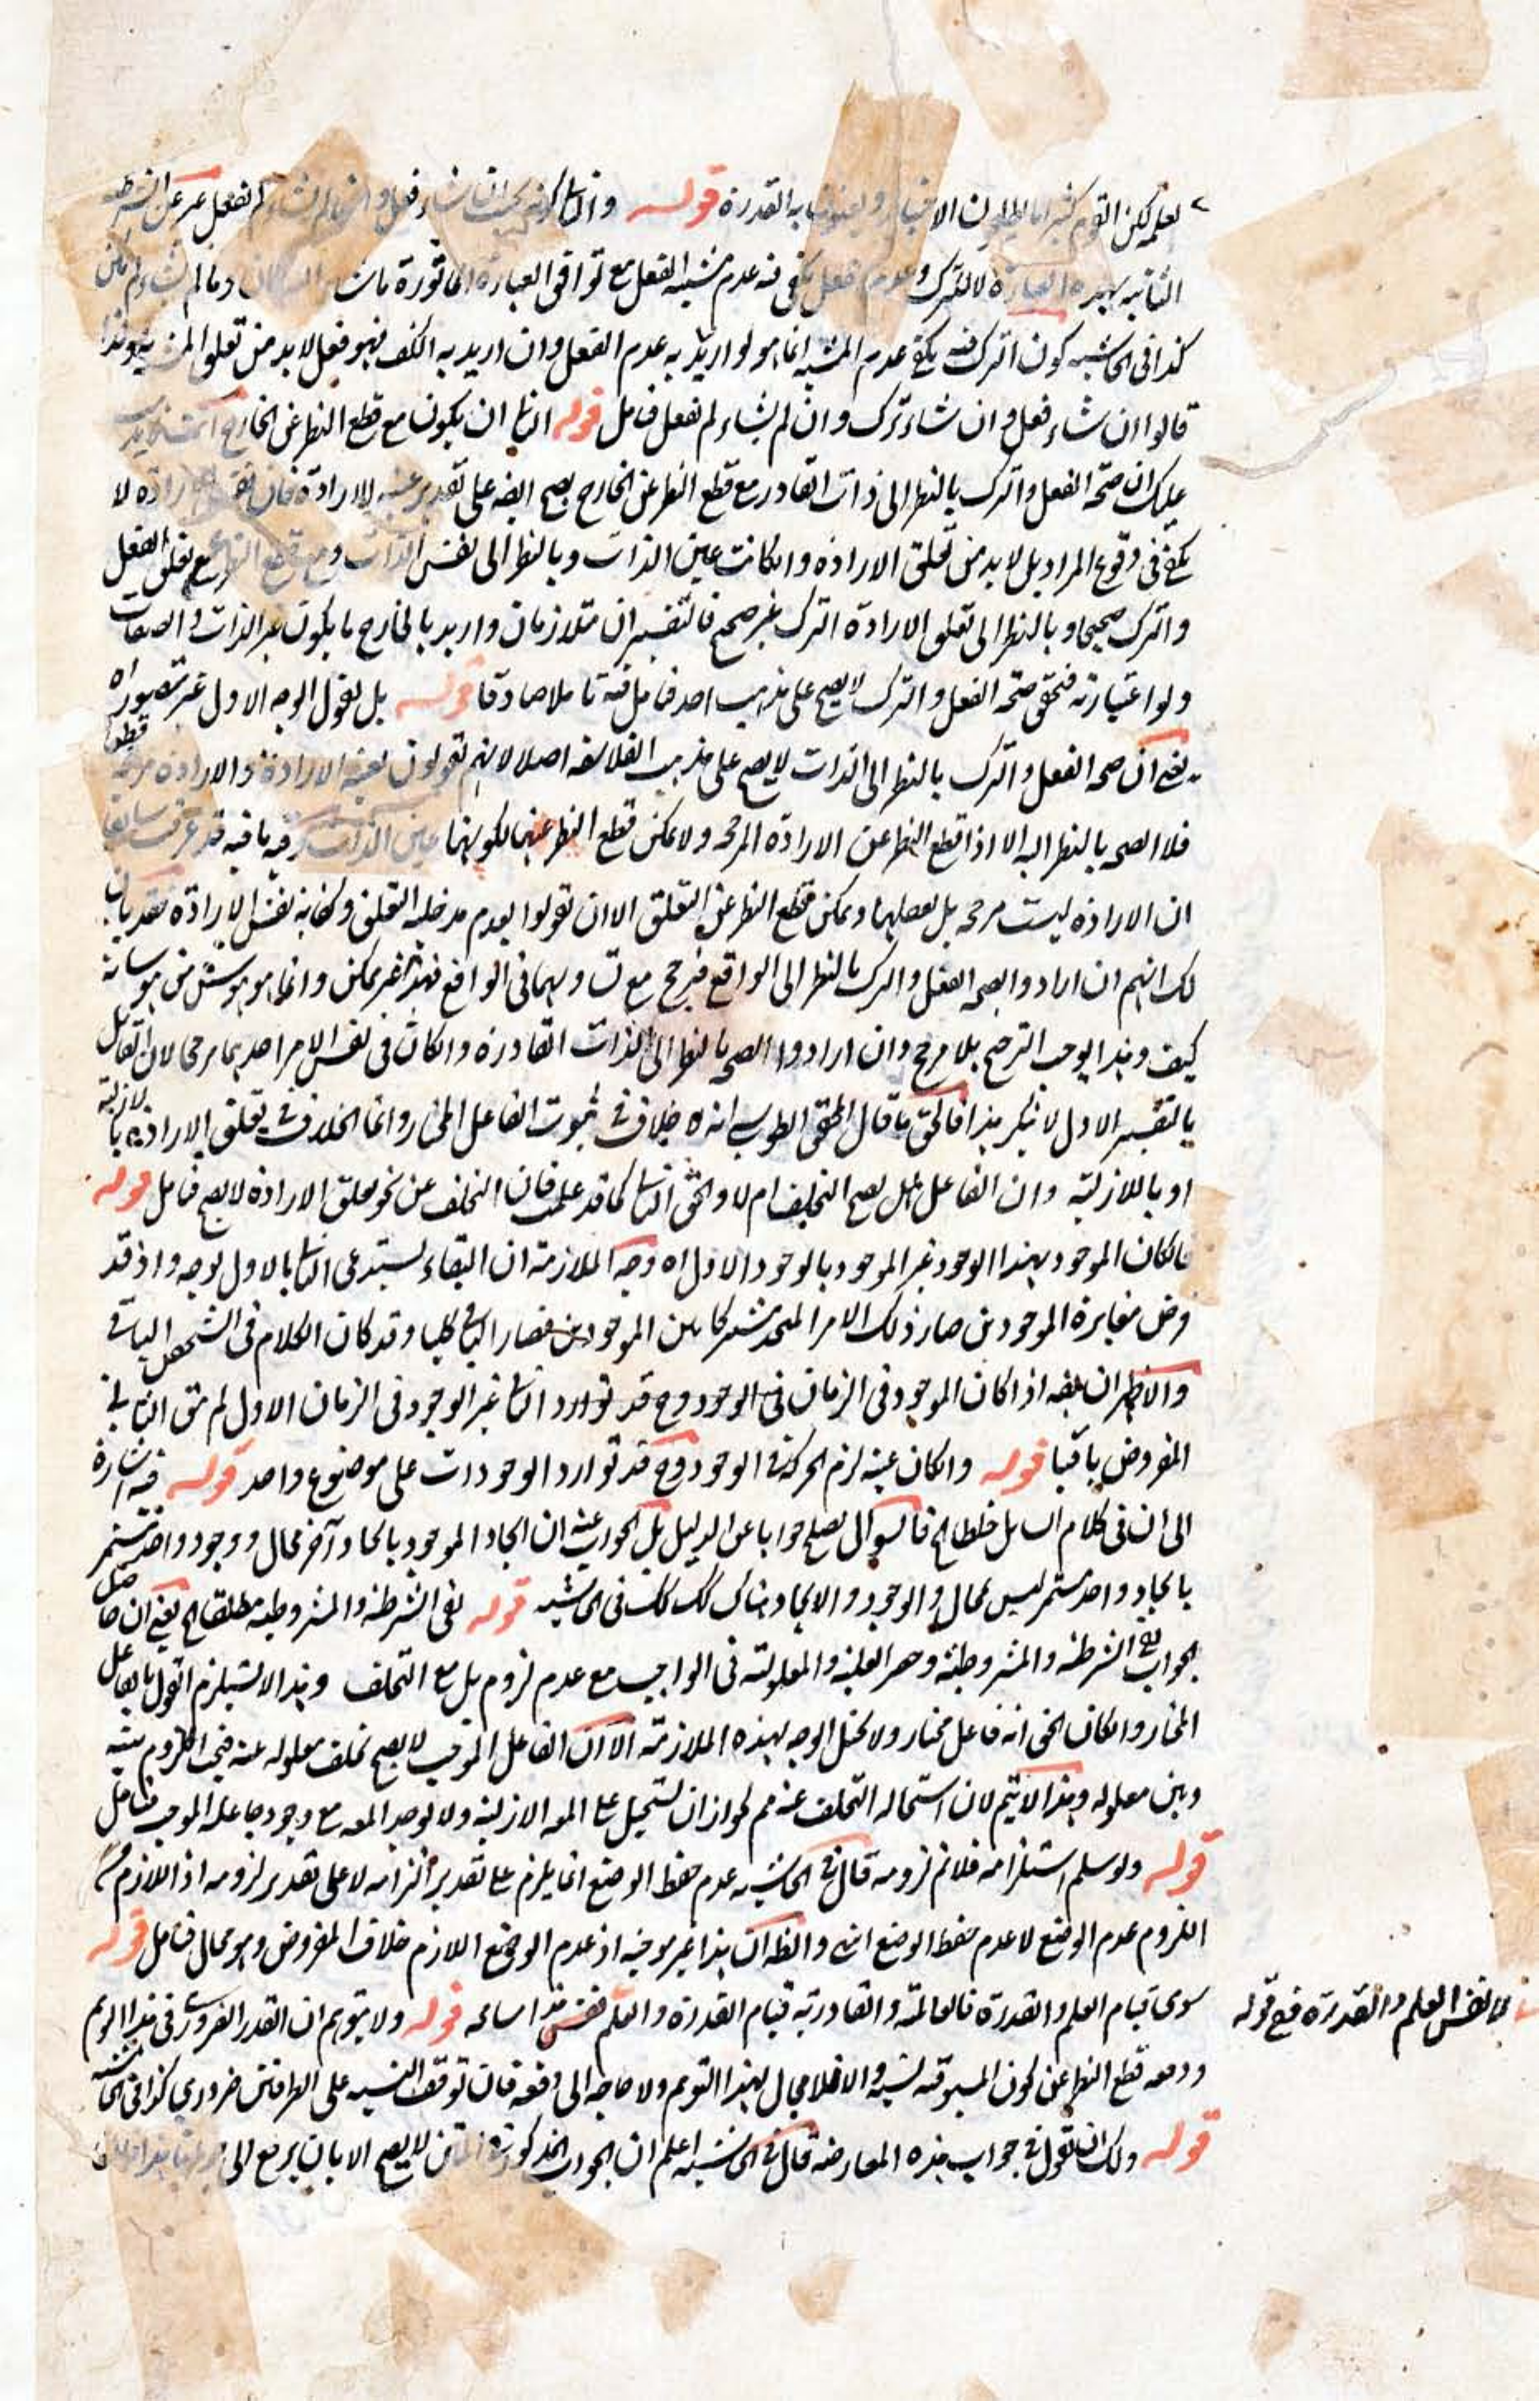 لعلمه لكن القوم كثيرا ما يطلقون الاختيار ويعنون به القدرة قوله والثانى كونه بحيث ان شاء فعل وان لم يشاء لم يفعل عبر عن الشرطية
الثانية بهذه العبارة لا لترك وعدم فعل يكفى فيه عدم مشية الفعل مع توافق العبارة الماثورة ماشاء الله كان وما لم يشاء لم يكن
كذا فى الحاشية كون الترك فيه يكفى عدم المشية انما هو لو اريد به عدم الفعل وان اريد به الكف فهو فعل لا بد من تعلق المشية به ولذا
قالوا ان شاء فعل وان شاء ترك وان لم يشاء لم يفعل فتامل قوله الثانى ان يكون مع قطع النظر عن الخارج
عليك ان صحة الفعل والترك بالنظر الى ذات القادر مع قطع النظر عن الخارج يصح ايضا على تقدير عينية الارادة فان نفس الارادة لا
يكفى فى وقوع المراد بل لا بد من تعلق الارادة وان كانت عين الذات وبالنظر الى نفس الذات ومع قطع النظر عن تعلق الفعل
والترك صحيحا وبالنظر الى تعلق الارادة الترك غير صحيح فالتفسيران متلازمان واريد بالخارج ما يكون غير الذات والصفات
ولو اعتبارية فتحقق صحة الفعل والترك لا يصح على مذهب احد فتامل فيه تاملا صادقا قوله بل نقول الوجه الاول غير متصور اه
يعنى ان صحة الفعل والترك بالنظر الى الذات لا يصح على مذهب الفلاسفة اصلا لانهم يقولون بعينية الارادة والارادة مرجحة قطعا
فلا الصحة بالنظر اليه الا اذا قطع النظر عن الارادة المرجحة ولا يمكن قطع النظر عنها لكونها عين الذات وفيه ما فيه قد عرفت سابقا
ان الارادة ليست مرجحة بل تعلقها ويمكن قطع النظر عن التعلق الا ان يقولوا بعدم مدخلية التعلق وكفاية نفس الارادة فقد بان
لك انهم ان ارادوا بصحة الفعل والترك بالنظر الى الواقع فيرجح مع تساويهما فى الواقع فهذا غير ممكن وانما هو هوس من هوساته
كيف وهذا يوجب الترجيح بلا مرجح وان ارادوا الصحة بالنظر الى الذات القادرة وان كان فى نفس الامر احدهما مرجحا لان القائل
بالتفسير الاول لا ينكر هذا فالحق ما قال المحقق الطوسى انه لا خلاف فى ثبوت الفاعل المختار وانما الخلاف فى تعلق الارادة بالازلية
او باللاازلية وان الفاعل هل يصح التخلف ام لا والحق الثانى كما قد علمت فان التخلف عن نحو تعلق الارادة لا يصح فتامل قوله
فالكان الموجود بهذا الوجود غير الموجود بالوجود الاول اه وجه الملازمة ان البقاء يستدعى الثانى بالاول بوجه واذ قد
فرض مغايرة الموجودين صار ذلك الامر المتحد مشتركا بين الموجودين فصار الباقى كليا وقد كان الكلام فى الشخص الباقى
والاظهر ان يقيد اذا كان الموجود فى الزمان فى الوجود وح قد توارد الثانى غير الوجود فى الزمان الاول لم يبق الباقى
المفروض باقيا قوله وان كان عينه لزم الحركة فى الوجود وح قد توارد الوجودات على موضوع واحد قوله فيه اشارة
الى ان فى كلام السائل خلطا اه فالسوال يصلح جوابا عن الدليل بل الجواب عنه ان ايجاد الموجود بايجاد آخر محال ووجود واحد مستمر
بايجاد واحد مستمر ليس بمحال والوجود والايجاد هناك كك كك فى الحاشية قوله نفى الشرطية والمشروطية مطلقا اه يعنى ان حاصل
الجواب نفى الشرطية والمشروطية وحصر العلية والمعلولية فى الواجب مع عدم لزوم بل مع التخلف وهذا لا يستلزم القول بالفاعل
المختار وان كان الحق انه فاعل مختار ولا يخل الوجه بهذه الملازمة الا ان الفاعل الموجب لا يصح تخلف معلوله عنه فيجب اللزوم بينه
وبين معلوله وهذا لا يتم لان استحالة التخلف عنه مم لجواز ان يستحيل على المع الازلية ولا يوجد المع مع وجود جاعله الموجب فتامل
قوله ولو سلم استلزامه فلا نم لزومه قال فى الحاشية عدم حفظ الوضع انما يلزم على تقدير التزامه لا على تقدير لزومه اذ اللازم من
اللزوم عدم الوضع لا عدم حفظ الوضع انتهى والظ ان هذا غير موجه اذ عدم الوضع اللازم خلاف المفروض وهو محال فتامل قوله
سوى قيام العلم والقدرة فالعالمية والقادرية قيام القدرة والعلم قوله ولا يتوهم ان القدر الضرورى فى هذا الوهم
ودفعه قطع النظر عن كون المسبوقية نسبة والا فلا مجال لهذا التوهم ولا حاجة الى دفعه فان توقف النسبة على الطرفين ضرورى كذا فى الحاشية
قوله ولك ان تقول فى جواب هذه المعارضة قال فى الحاشية اعلم ان الجواب المذكور فى المتن لا يصح الا بان يرجع الى
نفس العلم والقدرة فمع قوله